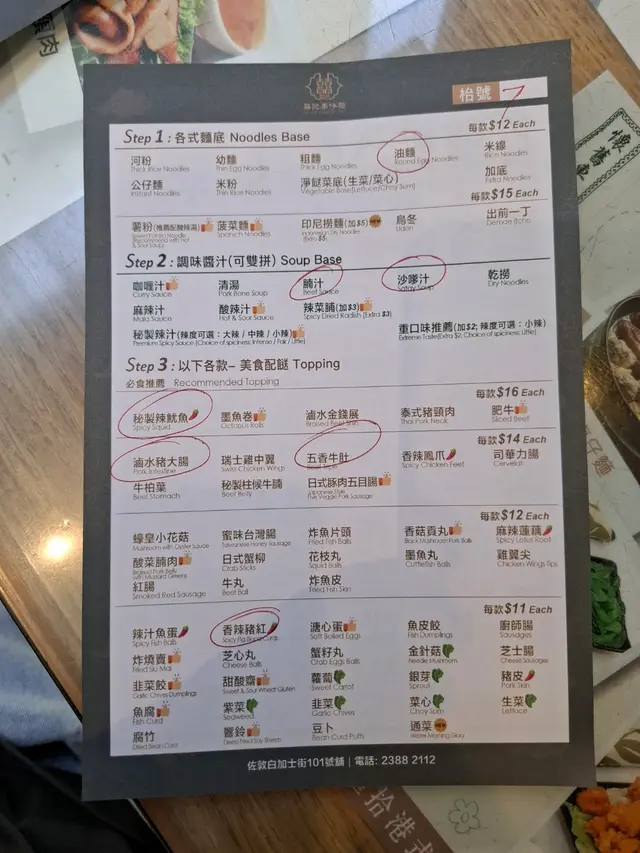 蕉肉
懷舊魚
枱號 7
Step 1 : 各式麵底 Noodles Base 每款$12 Each
河粉 幼麵 粗麵 油麵 米線
Thick Rice Noodles Thin Egg Noodles Thick Egg Noodles Round Egg Noodles Rice Noodles
公仔麵 米粉 淨餸菜底(生菜/菜心) 加底
Instant Noodles Thin Rice Noodles Vegetable Base(Lettuce/Choy Sum) Extra Noodles
每款$15 Each
薯粉(推薦配酸辣湯) 菠菜麵 印尼撈麵(加$5) 烏冬 出前一丁
Sweet Potato Noodles (Recommend with Hot & Sour Soup) Spinach Noodles Indonesian Dry Noodles (Extra $5) Udon Demae Itcho
Step 2 : 調味醬汁(可雙拼) Soup Base
咖喱汁 清湯 腩汁 沙嗲汁 乾撈
Curry Sauce Pork Bone Soup Beef Sauce Satay Soup Dry Noodles
麻辣汁 酸辣汁 辣菜脯(加$3)
Mala Sauce Hot & Sour Sauce Spicy Dried Radish (Extra $3)
秘製辣汁(辣度可選：大辣/中辣/小辣) 重口味推薦(加$2; 辣度可選：小辣)
Premium Spicy Sauce (Choice of spiciness: Intense / Fair / Little) Extreme Taste(Extra $2, Choice of spiciness: Little)
Step 3 : 以下各款- 美食配餸 Topping
必食推薦 Recommended Topping
每款$16 Each
秘製辣魷魚 墨魚卷 滷水金錢展 泰式豬頸肉 肥牛
Spicy Squid Octopus Rolls Braised Beef Shin Thai Pork Neck Sliced Beef
每款$14 Each
滷水豬大腸 瑞士雞中翼 五香牛肚 香辣鳳爪 司華力腸
Pork Intestine Swiss Chicken Wings Spicy Chicken Feet Cervelat
牛柏葉 秘製柱候牛腩 日式豚肉五目腸
Beef Stomach Beef Belly Japanese Style Five Veggie Pork Sausage
每款$12 Each
蠔皇小花菇 蜜味台灣腸 炸魚片頭 香菇貢丸 麻辣蓮藕
Mushroom with Oyster Sauce Taiwanese Honey Sausage Fried Fish Balls Black Mushroom Pork Balls Spicy Lotus Root
酸菜腩肉 日式蟹柳 花枝丸 墨魚丸 雞翼尖
Braised Pork Belly with Mustard Greens Crab Sticks Squid Balls Cuttlefish Balls Chicken Wings Tips
紅腸 牛丸 炸魚皮
Smoked Red Sausage Beef Ball Fried Fish Skin
每款$11 Each
辣汁魚蛋 香辣豬紅 溏心蛋 魚皮餃 廚師腸
Spicy Fish Balls Spicy Pig Blood Curds Soft Boiled Eggs Fish Dumplings Sausages
炸燒賣 芝心丸 蟹籽丸 金針菇 芝士腸
Fried Siu Mai Cheese Balls Crab Eggs Balls Needle Mushroom Cheese Sausages
韮菜餃 甜酸齋 蘿蔔 銀芽 豬皮
Garlic Chives Dumplings Sweet & Sour Wheat Gluten Sweet Carrot Sprout Pork Skin
魚腐 紫菜 韮菜 菜心 生菜
Fish Curd Seaweed Garlic Chives Choy Sum Lettuce
腐竹 響鈴 豆卜 通菜
Dried Bean Curd Deep Fried Soy Sheets Bean Curd Puffs Water Morning Glory
佐敦白加士街101號舖 | 電話: 2388 2112
仔麵
拾港式